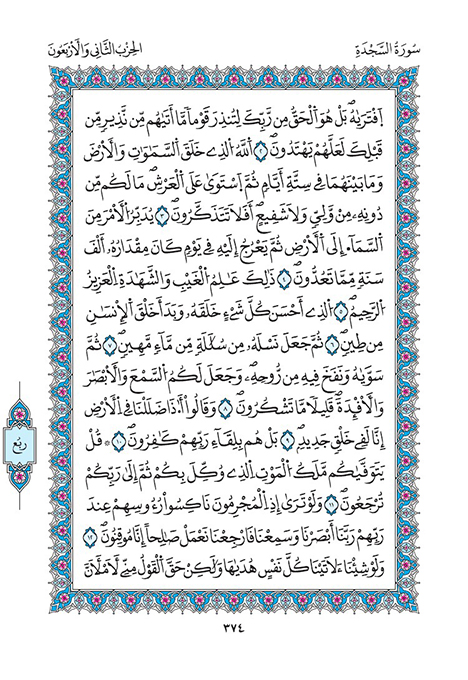 سُورَةُ السَّجْدَةِ
الحِزْبُ الثَّانِي وَالْأَرْبَعُونَ
اِفْتَرَيٰهُۖ بَلْ هُوَ اَ۬لْحَقُّ مِن رَّبِّكَ لِتُنذِرَ قَوْماٗ مَّآ أَتَيٰهُم مِّن نَّذِيرٖ مِّن
قَبْلِكَ لَعَلَّهُمْ يَهْتَدُونَۖ ٢ اَ۬للَّهُ اُ۬لذِے خَلَقَ اَ۬لسَّمَٰوَٰتِ وَالْأَرْضَ
وَمَا بَيْنَهُمَا فِے سِتَّةِ أَيَّامٖ ثُمَّ اَ۪سْتَوَىٰ عَلَى اَ۬لْعَرْشِۖ مَا لَكُم مِّن
دُونِهِۦ مِنْ وَّلِيّٖ وَلَا شَفِيعٍۖ اَفَلَا تَتَذَكَّرُونَۖ ٣ يُدَبِّرُ اُ۬لْأَمْرَ مِنَ
اَ۬لسَّمَآءِ اِلَى اَ۬لْأَرْضِ ثُمَّ يَعْرُجُ إِلَيْهِ فِے يَوْمٖ كَانَ مِقْدَارُهُۥٓ أَلْفَ
سَنَةٖ مِّمَّا تَعُدُّونَۖ ٤ ذَٰلِكَ عَٰلِمُ اُ۬لْغَيْبِ وَالشَّهَٰدَةِ اِ۬لْعَزِيزُ
اُ۬لرَّحِيمُۖ ٥ اُ۬لذِےٓ أَحْسَنَ كُلَّ شَےْءٍ خَلَقَهُۥۖ وَبَدَأَ خَلْقَ اَ۬لْإِنسَٰنِ
مِن طِينٖۖ ٦ ثُمَّ جَعَلَ نَسْلَهُۥ مِن سُلَٰلَةٖ مِّن مَّآءٖ مَّهِينٖۖ ٧ ثُمَّ
سَوَّيٰهُ وَنَفَخَ فِيهِ مِن رُّوحِهِۦۖ وَجَعَلَ لَكُمُ اُ۬لسَّمْعَ وَالْأَبْصَٰرَ
وَالْأَفْـِٕدَةَۖ قَلِيلاٗ مَّا تَشْكُرُونَۖ ٨ وَقَالُوٓاْ أَ۟ذَا ضَلَلْنَا فِے اِ۬لْأَرْضِ
إِنَّا لَفِے خَلْقٖ جَدِيدِۢۖ ٩ بَلْ هُم بِلِقَآءِ رَبِّهِمْ كَٰفِرُونَۖ ١٠ ۞ قُلْ
يَتَوَفَّيٰكُم مَّلَكُ اُ۬لْمَوْتِ اِ۬لذِے وُكِّلَ بِكُمْ ثُمَّ إِلَىٰ رَبِّكُمْ
تُرْجَعُونَۖ ١١ وَلَوْ تَرَىٰٓ إِذِ اِ۬لْمُجْرِمُونَ نَاكِسُواْ رُءُوسِهِمْ عِندَ
رَبِّهِمْ رَبَّنَآ أَبْصَرْنَا وَسَمِعْنَا فَارْجِعْنَا نَعْمَلْ صَٰلِحاً اِنَّا مُوقِنُونَۖ ١٢
وَلَوْ شِئْنَا لَأٓتَيْنَا كُلَّ نَفْسٍ هُدَيٰهَا وَلَٰكِنْ حَقَّ اَ۬لْقَوْلُ مِنِّے لَأَمْلَأَنَّ
ربع
٣٧٤